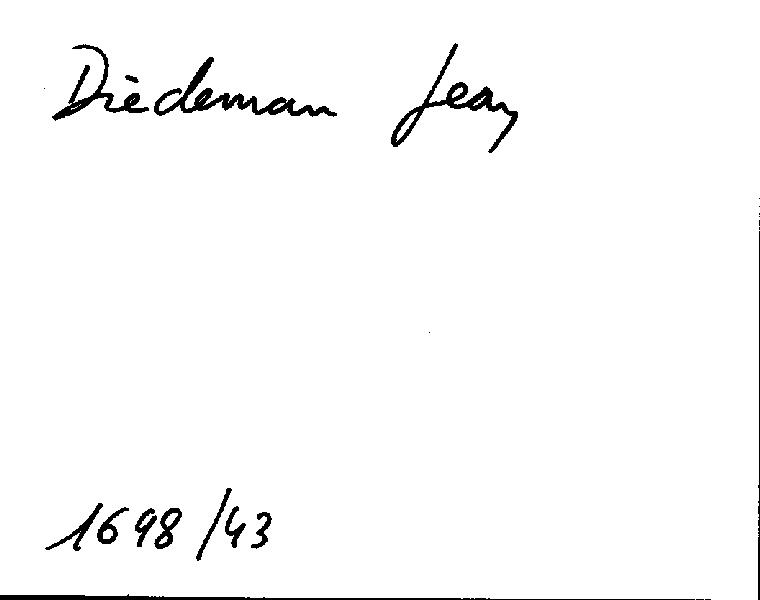 Diedeman Jean
1698/43